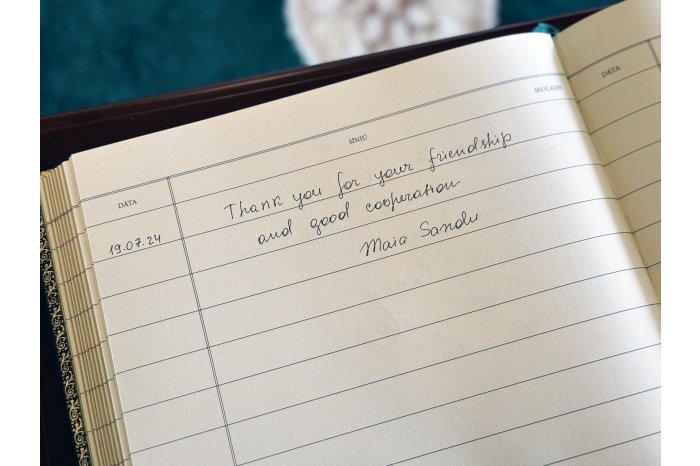 DÁTA SÍNIÚ SEOLADH DÁTA
19.07.24 Thank you for your friendship
and good cooperation
Maia Sandu